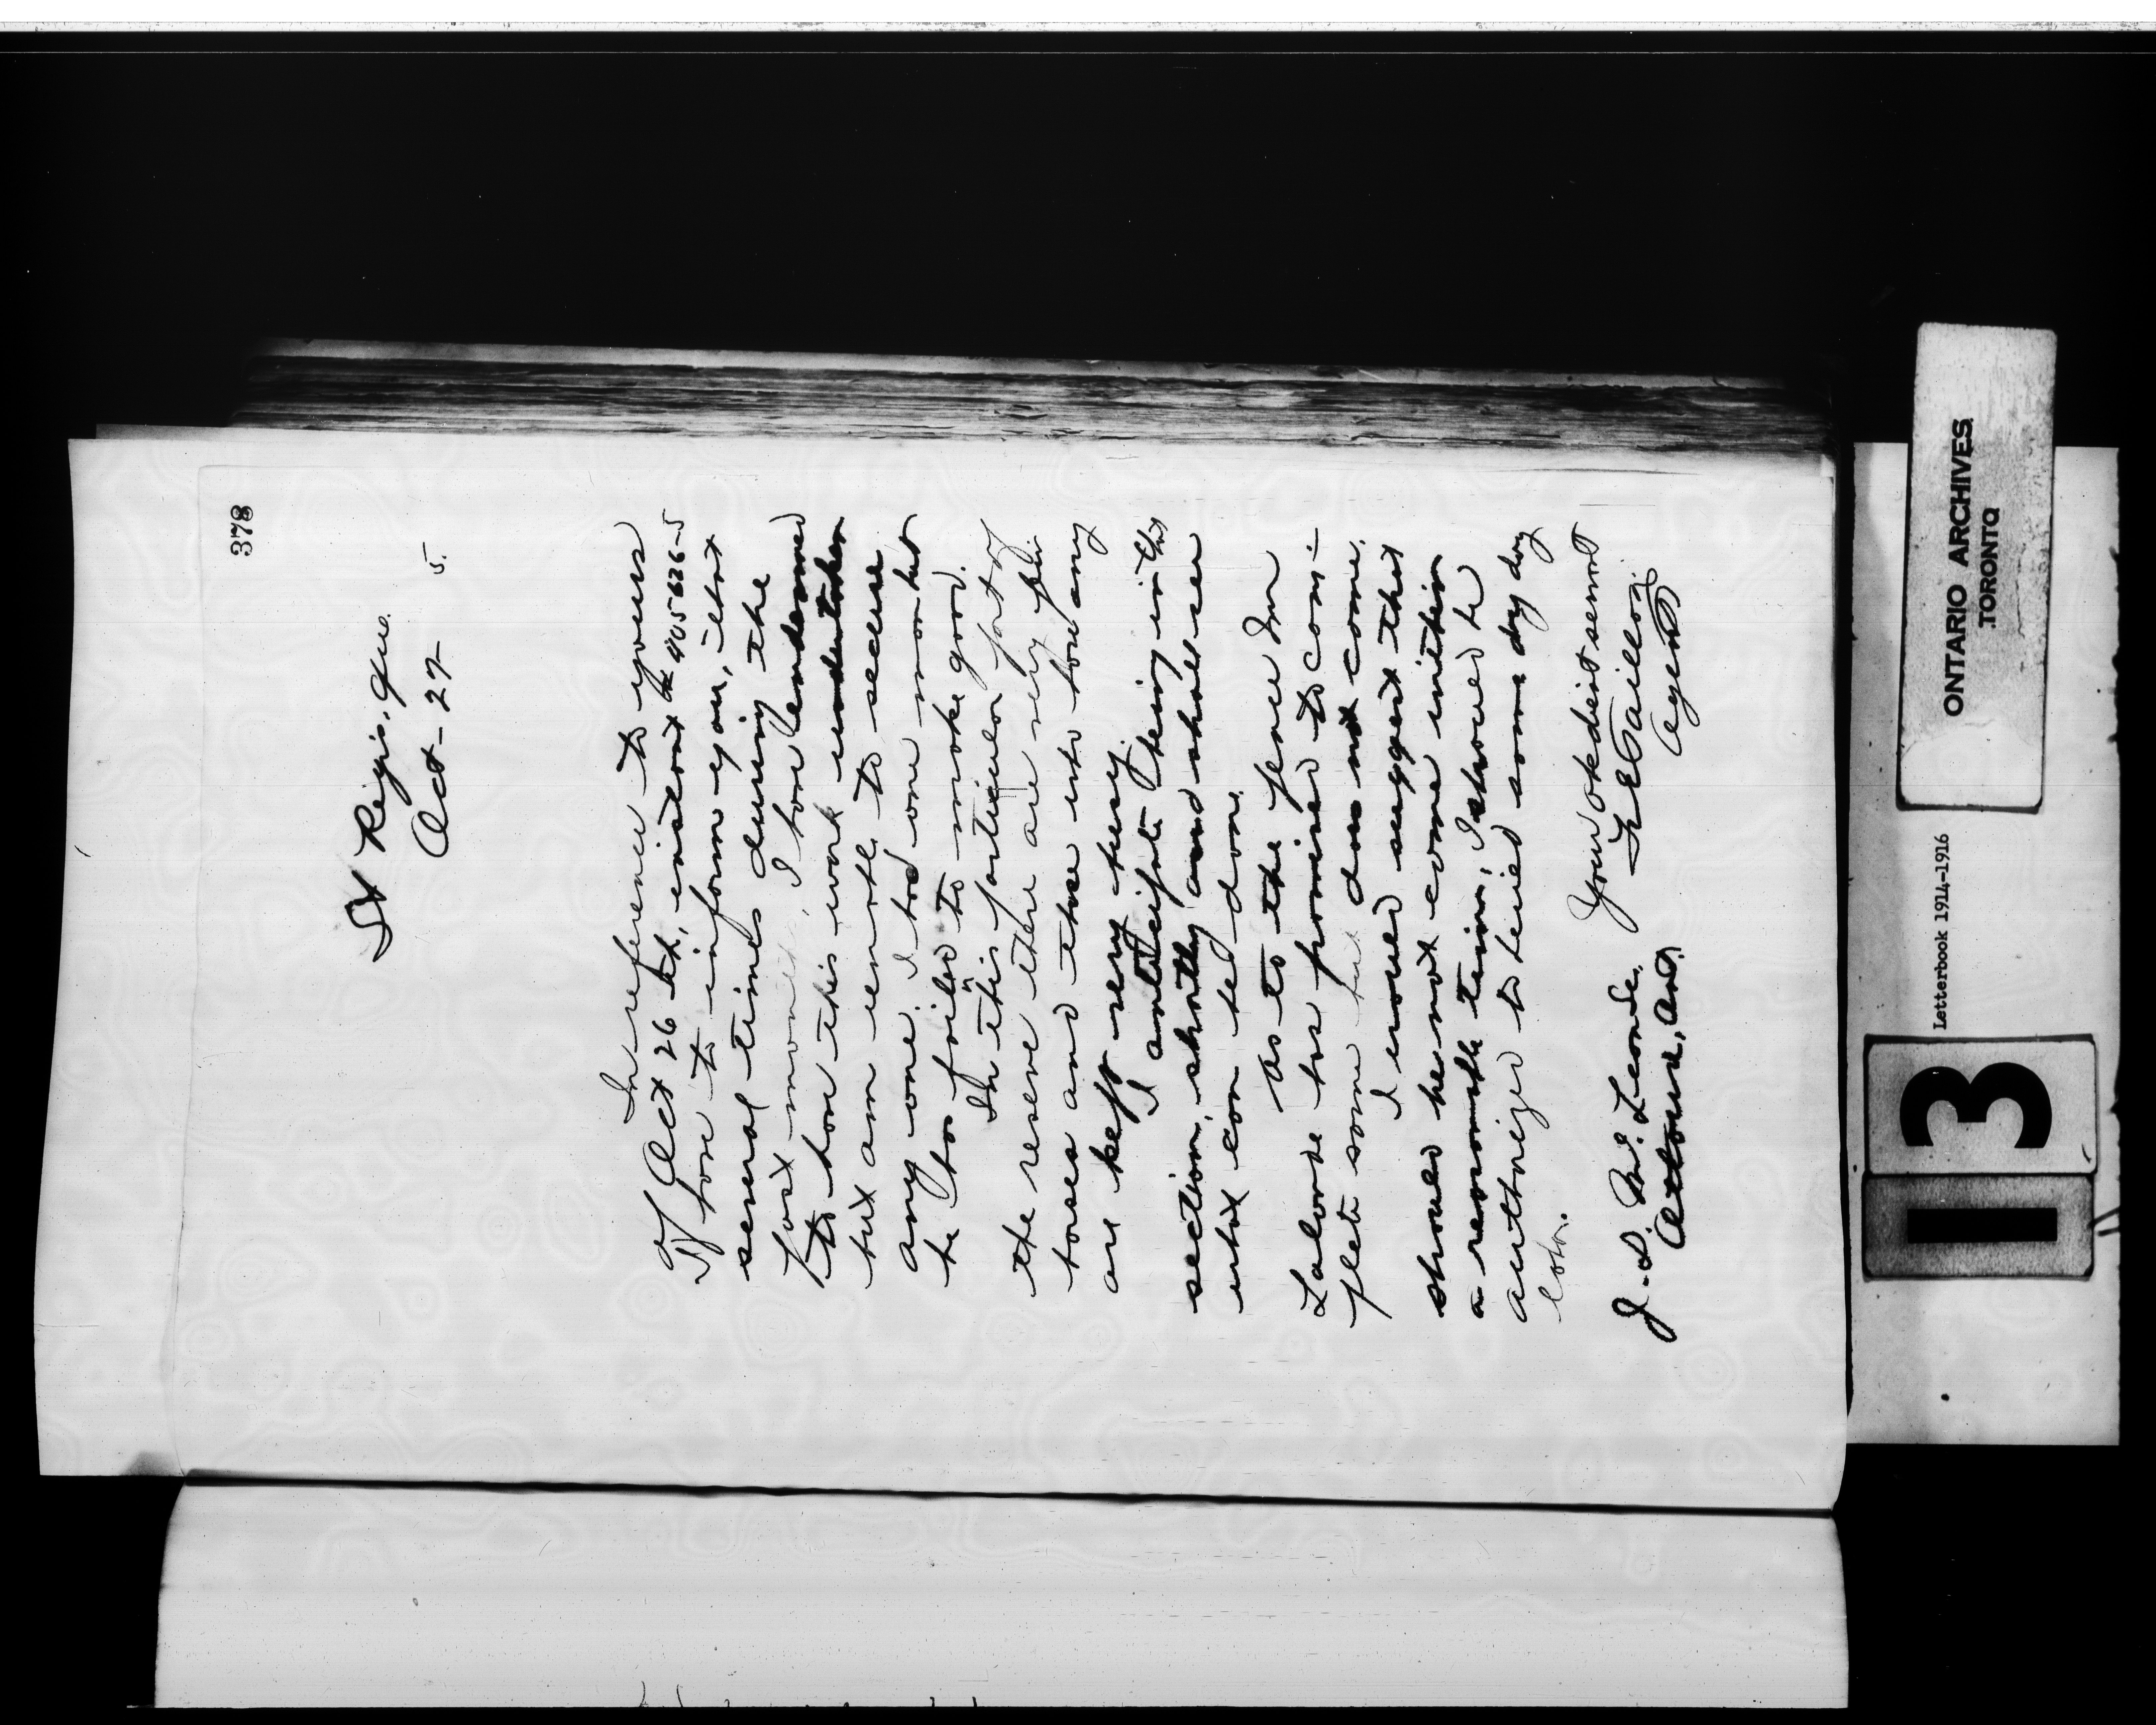 378
St Regis, Que.
Oct - 27 - 5.
In reference to yours
of Oct 26th, instant 405626-5
I have to inform you, that
several times during the
past month, I have endeavored
to have this work undertaken
but am unable to secure
any one. I had one man but
he has failed to make good.
In this particular part of
the reserve there are very few
horses and those who have any
are kept very busy.
I anticipate being in this
section, shortly and shall see
what can be done.
As to the fence Mr
Lalonde has promised to com-
plete same but does not come.
I would suggest that
should he not come within
a reasonable time, I should be
authorized to hire some by day
labor.
Your obedient servant
F E Taillon
Agent
J. D. McLean
Ottawa, Ont.
ONTARIO ARCHIVES
TORONTO
Letterbook 1914-1916
13